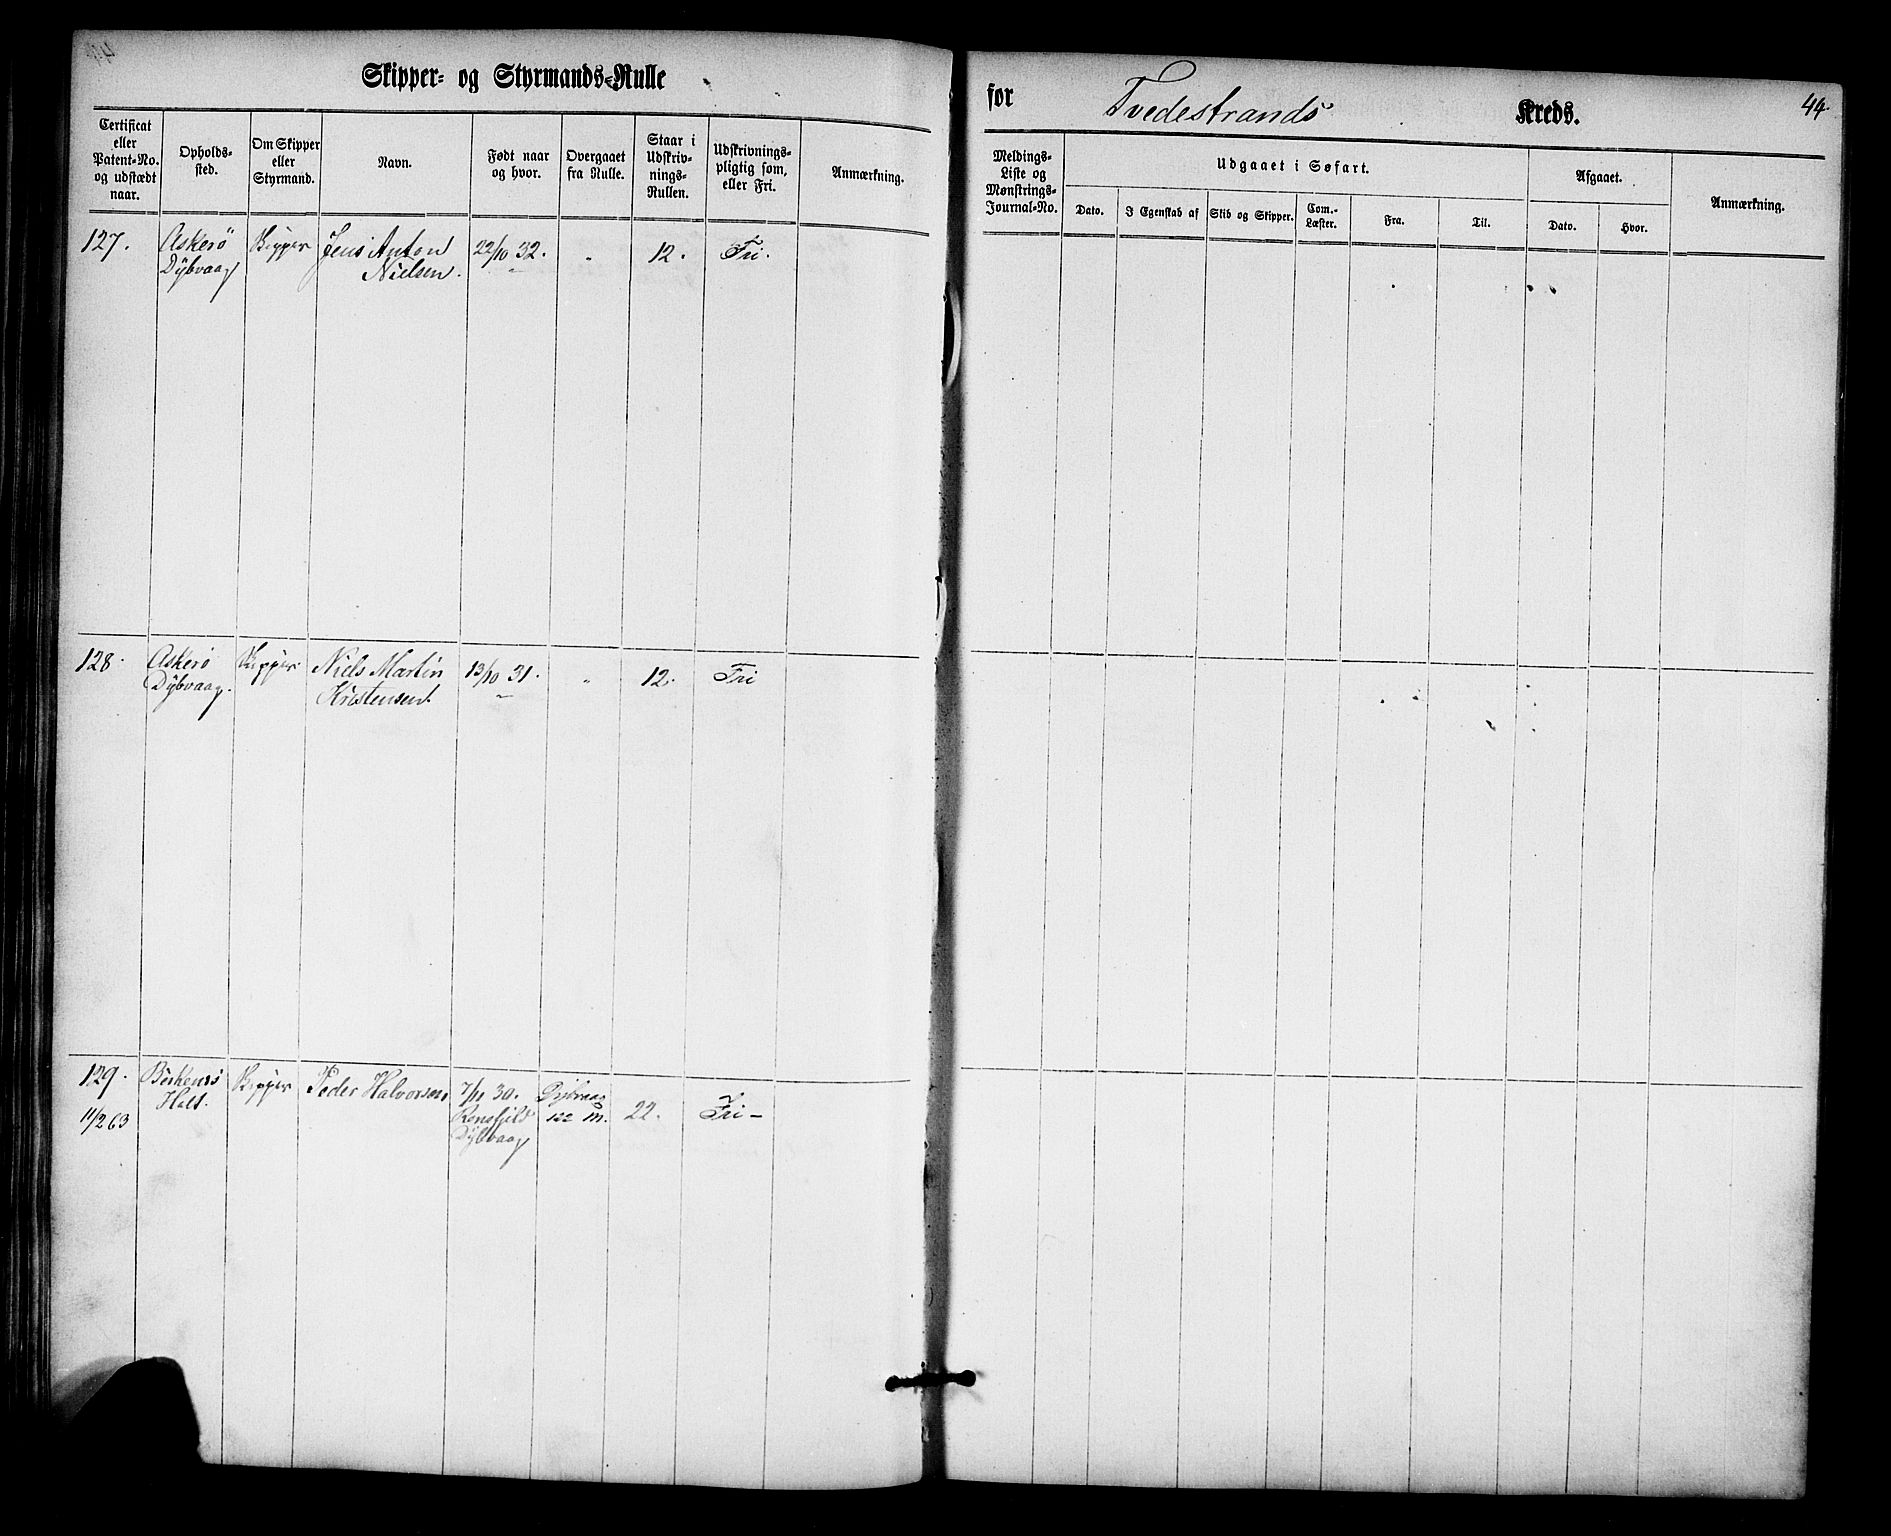 Skipper- og Styrmands-Rulle
for Tvedestrands Kreds. 44
Certificat eller Patent-No. og udstædt naar.
Opholds-sted.
Om Skipper eller Styrmand.
Navn.
Født naar og hvor.
Overgaaet fra Rulle.
Staar i Udskriv-nings-Rullen.
Udskrivnings-pligtig som, eller Fri.
Anmærkning.
Meldings-Liste og Mønstrings-Journal-No.
Udgaaet i Søfart.
Dato.
I Egenskab af
Skib og Skipper.
Com.-Læster.
Fra.
Til.
Afgaaet.
Dato.
Hvor.
Anmærkning.
127. Askerö Skipper Jens Anton 22/10 32. " 12. Fri.
Dybvaag Nielsen. "
128. Askerö Skipper Niels Martin 13/10 31. " 12. Fri
Dybvaag. Kristensen. "
129. Skipper Peder Halvorsen 7/11 30. Dybvaag
11/2 63 Holt. 122 m. 22. Fri -
Dybvaag